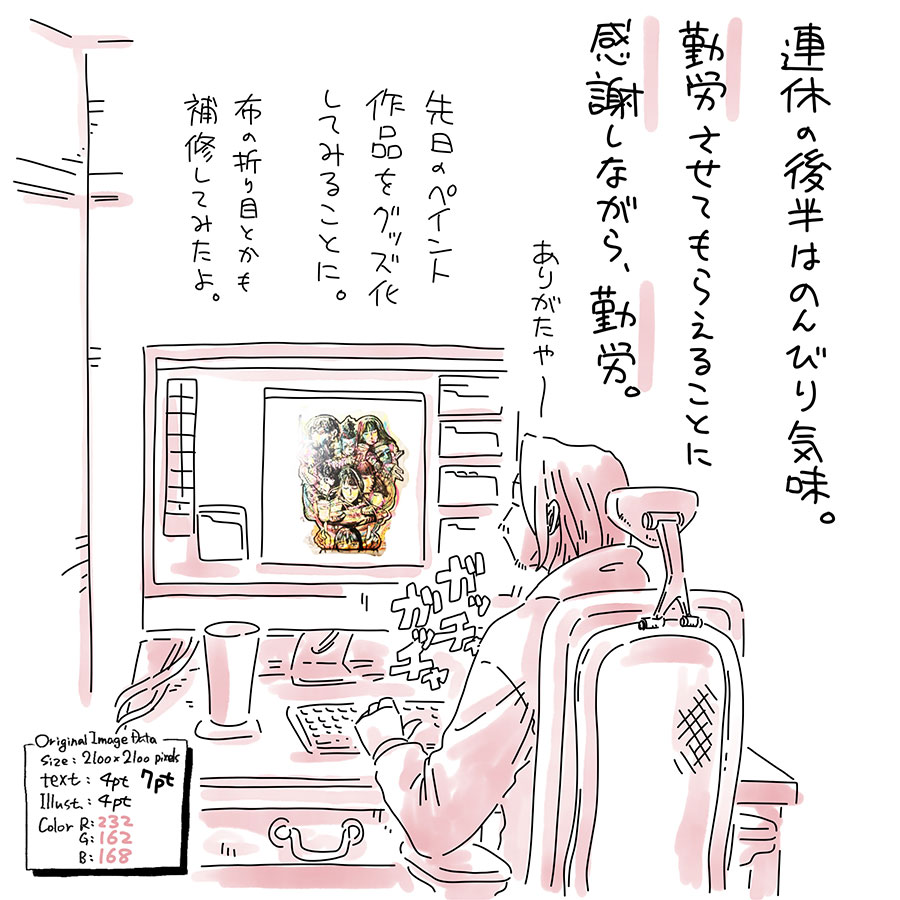 連休の後半はのんびり気味。
勤労させてもらえることに
感謝しながら、勤労。
ありがたや〜
先日のペイント
作品をグッズ化
してみることに。
布の折り目とかも
補修してみたよ。
ガッチャ
ガッチャ
Original Image Data
Size : 2100×2100 pixels
text : 4pt 7pt
Illust. : 4pt
Color R: 232
G: 162
B: 168